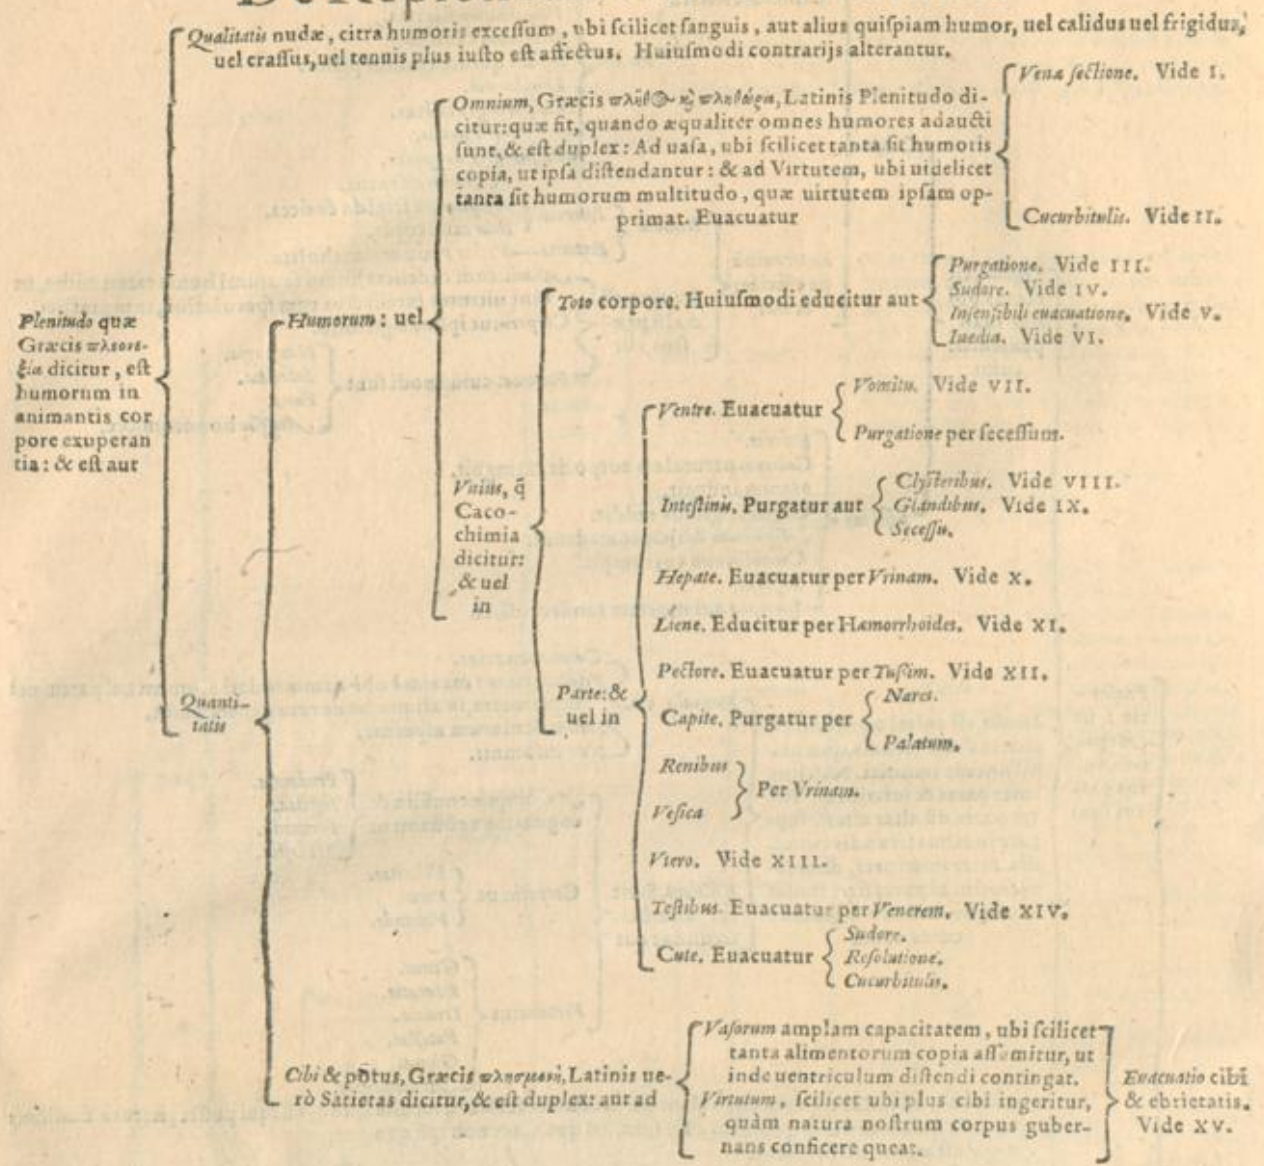 Qualitatis nudæ, citra humoris exceſſum, ubi ſcilicet ſanguis, aut alius quiſpiam humor, uel calidus uel frigidus,
uel craſſus, uel tenuis plus iuſto eſt affectus. Huiuſmodi contrarijs alterantur.
Plenitudo quæ
Græcis πλεονε-
ξία dicitur, eſt
humorum in
animantis cor
pore exuperan
tia: & eſt aut
Quanti-
tatis
Humorum: uel
Omnium, Græcis πλῆθος καὶ πληθώρα, Latinis Plenitudo di-
citur: quæ fit, quando æqualiter omnes humores adaucti
ſunt, & eſt duplex: Ad uaſa, ubi ſcilicet tanta ſit humoris
copia, ut ipſa diſtendantur: & ad Virtutem, ubi uidelicet
tanta ſit humorum multitudo, quæ uirtutem ipſam op-
primat. Euacuatur
Venæ ſectione. Vide I.
Cucurbitulis. Vide II.
Vnius, q̃
Caco-
chimia
dicitur:
& uel
in
Toto corpore. Huiuſmodi educitur aut
Purgatione. Vide III.
Sudore. Vide IV.
Inſenſibili euacuatione. Vide V.
Inedia. Vide VI.
Parte: &
uel in
Ventre. Euacuatur
Vomitu. Vide VII.
Purgatione per ſeceſſum.
Inteſtinis. Purgatur aut
Clyſteribus. Vide VIII.
Glandibus. Vide IX.
Seceſſu.
Hepate. Euacuatur per Vrinam. Vide X.
Liene. Educitur per Hæmorrhoides. Vide XI.
Pectore. Euacuatur per Tuſsim. Vide XII.
Capite. Purgatur per
Nares.
Palatum.
Renibus
Veſica
Per Vrinam.
Vtero. Vide XIII.
Teſtibus. Euacuatur per Venerem. Vide XIV.
Cute. Euacuatur
Sudore.
Reſolutione.
Cucurbitulis.
Cibi & potus, Græcis πλησμονή, Latinis ue-
rò Satietas dicitur, & eſt duplex: aut ad
Vaſorum amplam capacitatem, ubi ſcilicet
tanta alimentorum copia aſſumitur, ut
inde uentriculum diſtendi contingat.
Virtutum, ſcilicet ubi plus cibi ingeritur,
quàm natura noſtrum corpus guber-
nans conficere queat.
Euacuatio cibi
& ebrietatis.
Vide XV.